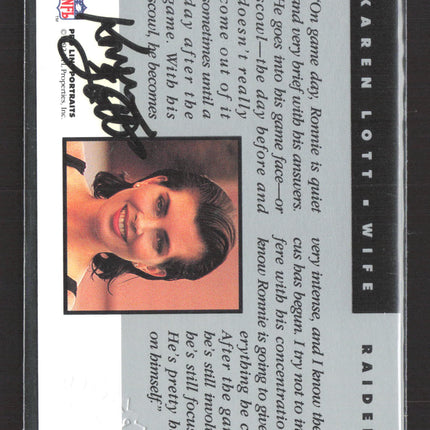 KAREN LOTT ▪ WIFE RAIDE
"On game day, Ronnie is quiet
and very brief with his answers.
He goes into his game face—or
scowl—the day before and
doesn't really
come out of it
sometimes until a
day after the
game. With his
scowl, he becomes
very intense, and I know the
cus has begun. I try not to in
fere with his concentration
know Ronnie is going to give
erything be c
After the ga
he's still invol
he's still focus
He's pretty
on himself."
NFL
PRO LINE PORTRAITS
Properties, Inc.